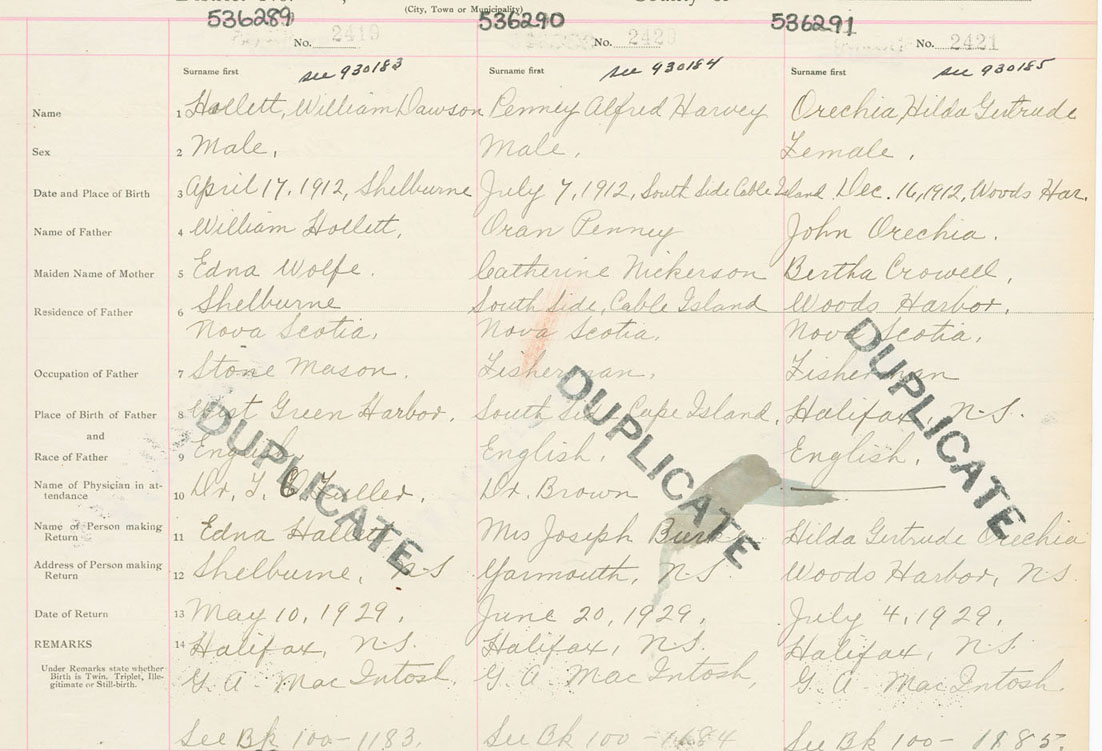 (City, Town or Municipality)
536289 536290 536291
No. 2419 No. 2420 No. 2421
Surname first see 930183 Surname first see 930184 Surname first see 930185
Name 1 Hollett, William Dawson Penney Alfred Harvey Orechia Hilda Gertrude
Sex 2 Male, Male, Female,
Date and Place of Birth 3 April 17, 1912, Shelburne July 7, 1912, South Side Cable Island Dec. 16, 1912, Woods Har.
Name of Father 4 William Hollett, Oran Penney John Orechia.
Maiden Name of Mother 5 Edna Wolfe. Catherine Nickerson Bertha Crowell,
Residence of Father 6 Shelburne South Side, Cable Island Woods Harbor,
Nova Scotia, Nova Scotia, Nova Scotia,
Occupation of Father 7 Stone Mason. Fisherman, Fisherman
Place of Birth of Father 8 West Green Harbor. South Side Cape Island, Halifax N-S.
and
Race of Father 9 English English. English,
Name of Physician in at-
tendance 10 Dr. Fuller. Dr. Brown
Name of Person making
Return 11 Edna Hallett Mrs Joseph Hilda Gertrude Orechia
Address of Person making
Return 12 Shelburne, N-S Yarmouth, N-S Woods Harbor, N-S.
Date of Return 13 May 10, 1929. June 20, 1929. July 4, 1929.
REMARKS 14 Halifax, N-S. Halifax, N-S. Halifax, N-S.
Under Remarks state whether
Birth is Twin, Triplet, Ille-
gitimate or Still-birth.
G. A - MacIntosh. G. A - MacIntosh, G. A - MacIntosh.
See Bk 100-1183. See Bk 100 - See Bk 100- 1885.
DUPLICATE DUPLICATE DUPLICATE